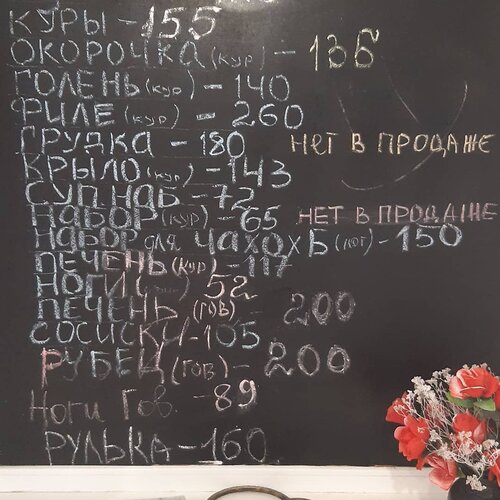 КУРЫ - 155
ОКОРОЧКА (кур) - 136
ГОЛЕНЬ (кур) - 140
ФИЛЕ (кур) - 260
ГРУДКА - 180 НЕТ В ПРОДАЖЕ
КРЫЛО (кур) - 143
СУП.НАБ - 72
НАБОР (кур) - 65 НЕТ В ПРОДАЖЕ
НАБОР для ЧАХОХБ (лот) - 150
ПЕЧЕНЬ (кур) - 117
НОГИ 52
ПЕЧЕНЬ (гов) - 200
СОСИСКИ - 105
РУБЕЦ (гов) - 200
Ноги Гов. - 89
РУЛЬКА - 160